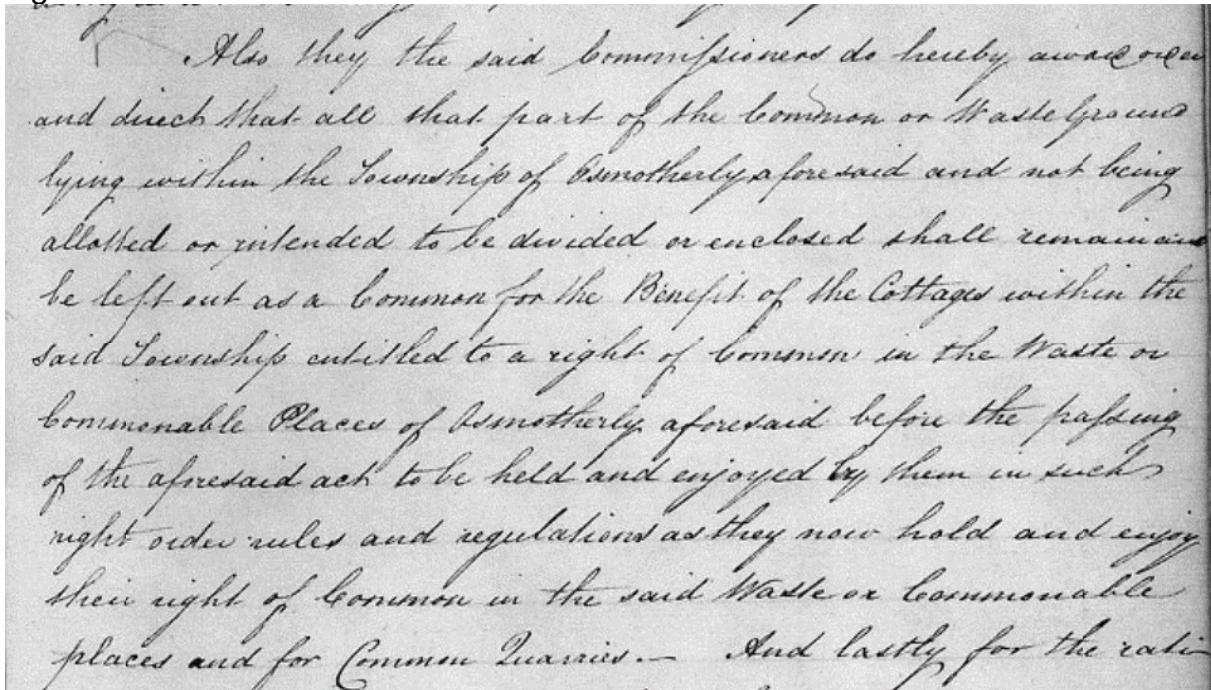 Also they the said Commissioners do hereby award order
and direct that all that part of the Common or Waste Ground
lying within the Township of Osmotherly aforesaid and not being
allotted or intended to be divided or enclosed shall remain and
be left out as a Common for the Benefit of the Cottages within the
said Township entitled to a right of Common in the Waste or
Commonable Places of Osmotherly aforesaid before the passing
of the aforesaid act to be held and enjoyed by them in such
right order rules and regulations as they now hold and enjoy
their right of Common in the said Waste or Commonable
places and for Common Quarries.— And lastly for the rati